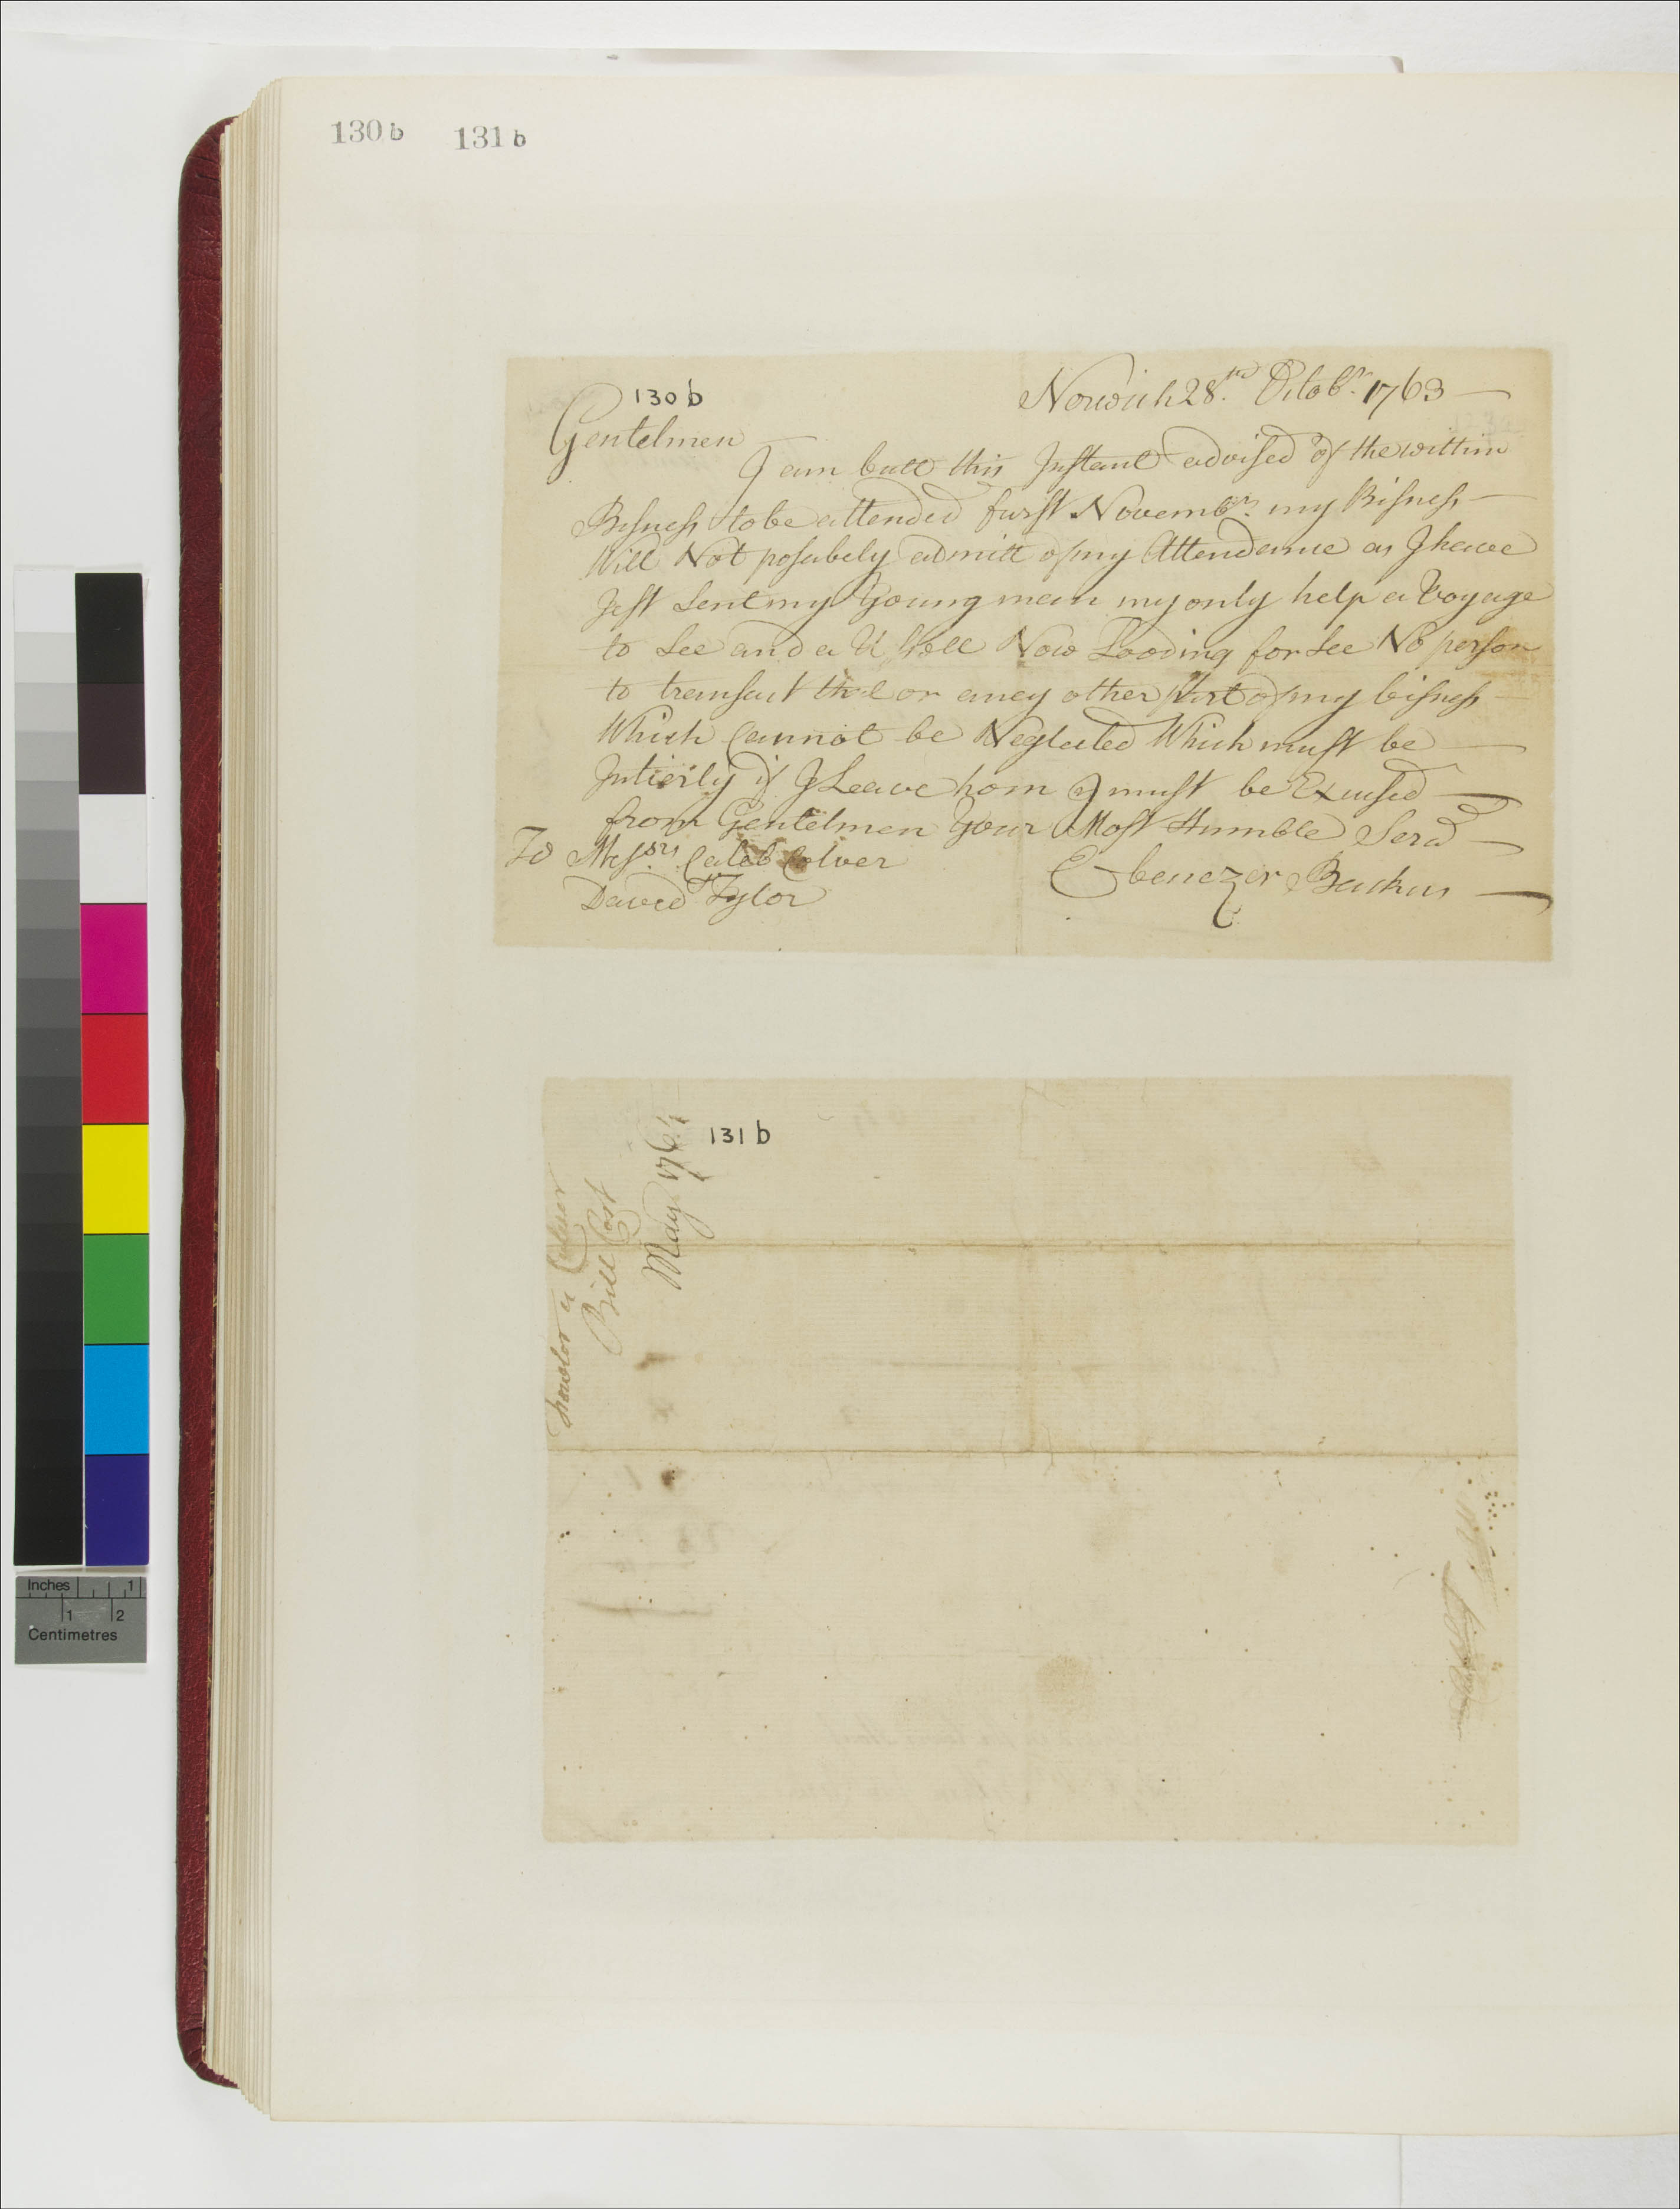 130 b 131 b
130 b
Norwich 28.th Octobr. 1763
Gentelmen
I am butt this Instant advised of the within
Bisness to be attended furst Novembr. my Bisness
Will Not posabely admitt of my Attendance as I have
Jest Sent my Young man my only help a Voyage
to See and a Vessell Now Looding for See No person
to transact that or aney other part of my bisness
Which Cannot be Neglected Which must be
Intierly if I Leave hom I must be Excused
from Gentelmen Your Most Humble Servt
To Messrs. Caleb Colver
Ebenezer Backus
David Tylor
131 b
Colver
Bill Cost
May 1764
Inches 1
1 2
Centimetres